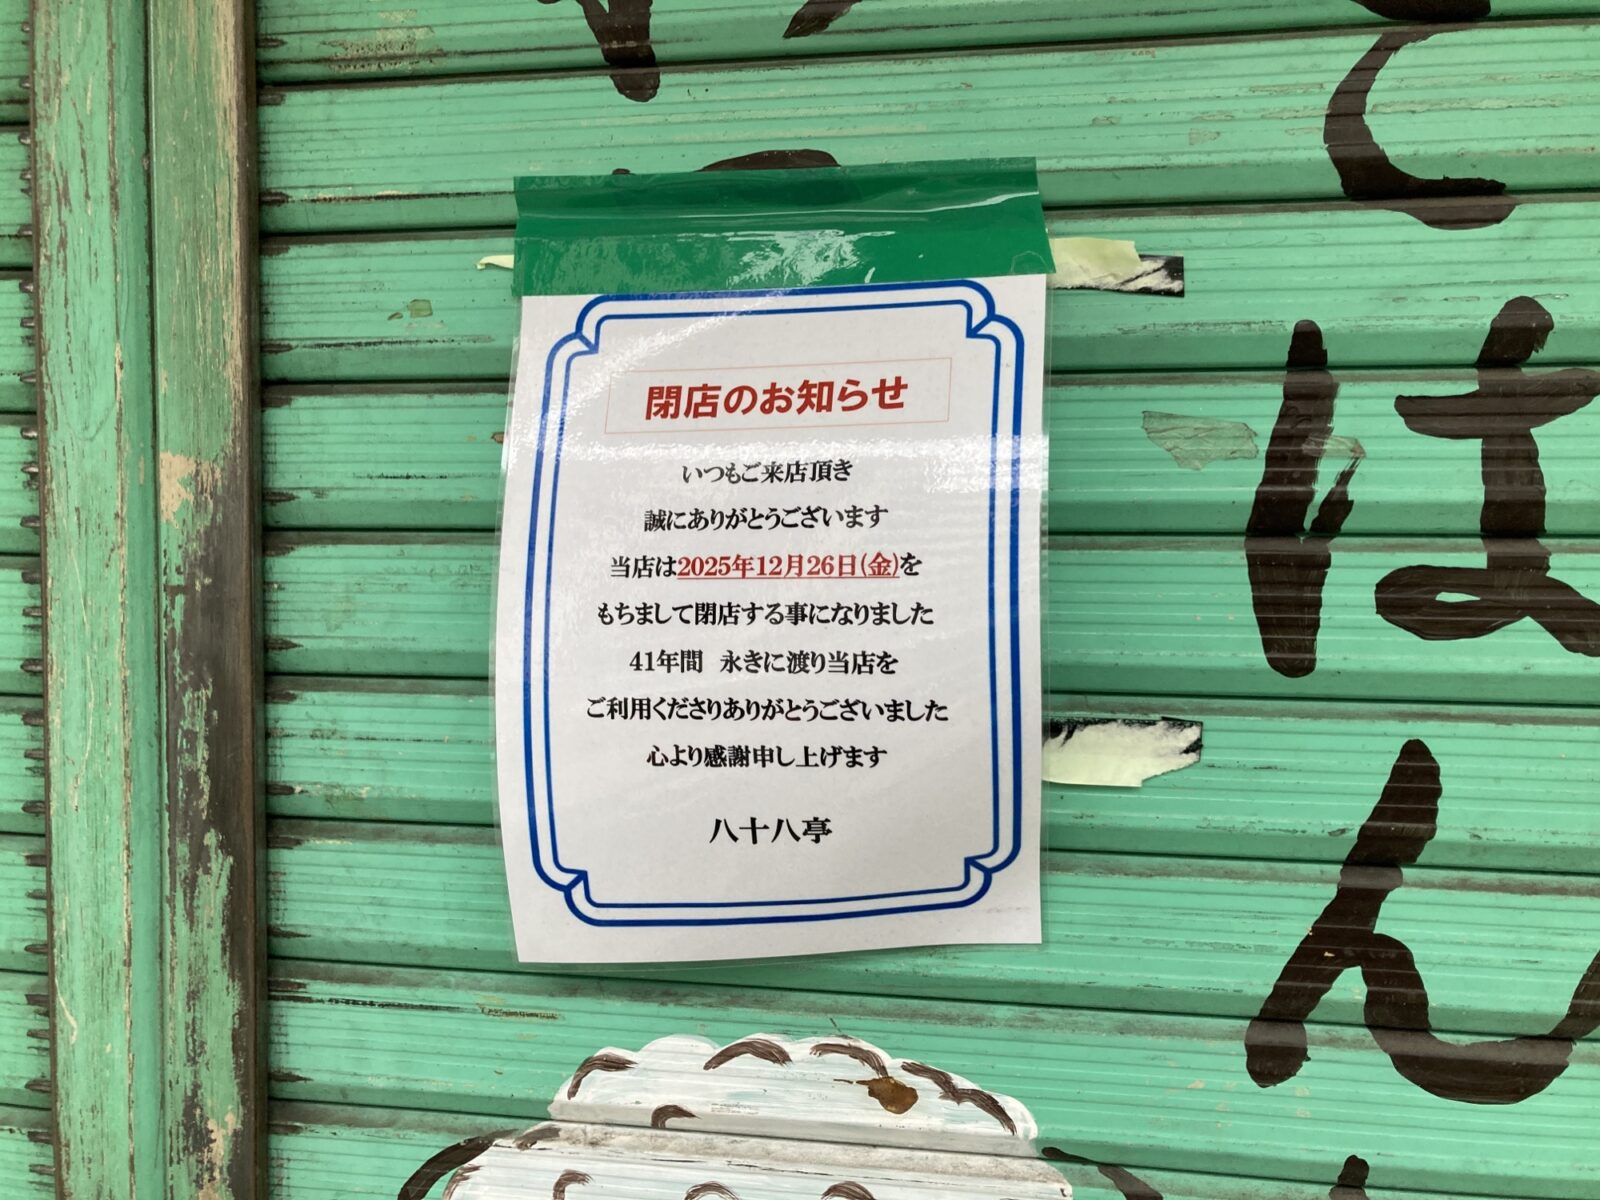 閉店のお知らせ
いつもご来店頂き
誠にありがとうございます
当店は2025年12月26日(金)を
もちまして閉店する事になりました
41年間 永きに渡り当店を
ご利用くださりありがとうございました
心より感謝申し上げます
八十八亭
ごはん